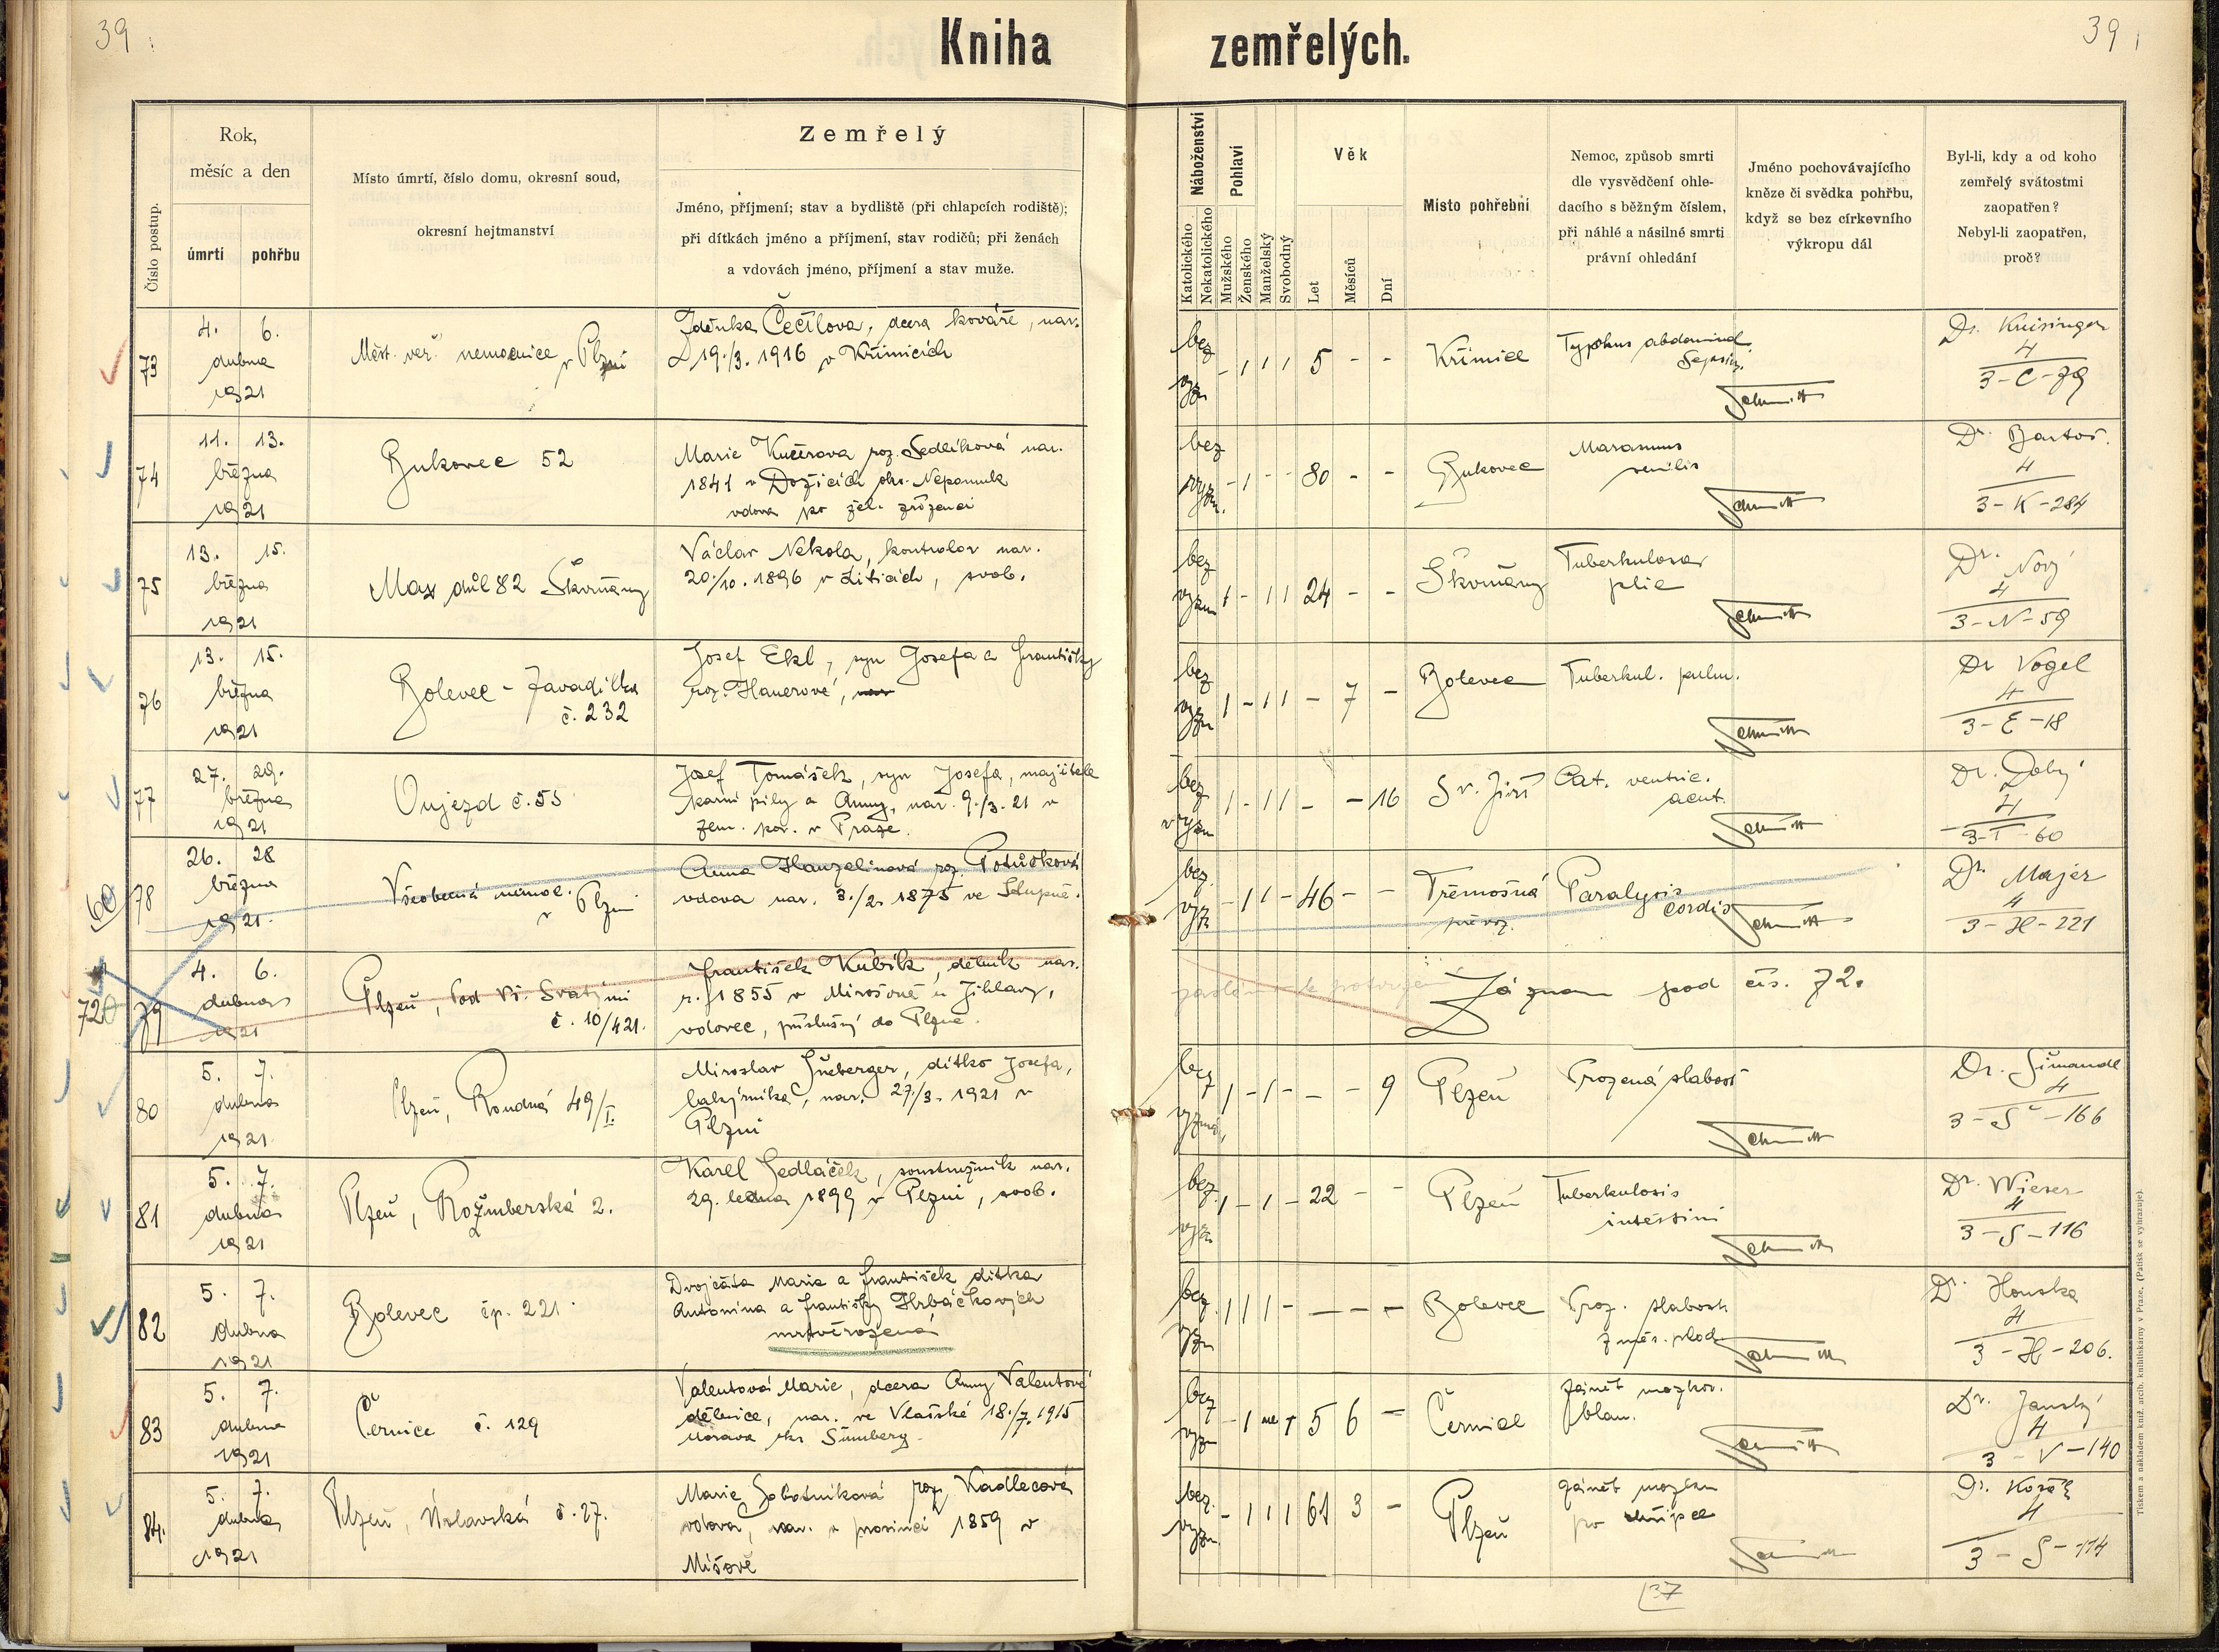 39
Kniha zemřelých.
39
Číslo postup.
Rok,
měsíc a den
úmrtí
pohřbu
Místo úmrtí, číslo domu, okresní soud,
okresní hejtmanství
Zemřelý
Jméno, příjmení; stav a bydliště (při chlapcích rodiště);
při dítkách jméno a příjmení, stav rodičů; při ženách
a vdovách jméno, příjmení a stav muže.
Náboženství
Katolického
Nekatolického
Pohlaví
Mužského
Ženského
Manželský
Svobodný
Věk
Let
Měsíců
Dní
Místo pohřební
Nemoc, způsob smrti
dle vysvědčení ohle-
dacího s běžným číslem,
při náhlé a násilné smrti
právní ohledání
Jméno pochovávajícího
kněze či svědka pohřbu,
když se bez církevního
výkropu dál
Byl-li, kdy a od koho
zemřelý svátostmi
zaopatřen?
Nebyl-li zaopatřen,
proč?
73
4. 6.
dubna
1921
Měst. veř. nemocnice v Plzni
Zdeňka Čečílova, dcera kováře, nar.
19./3. 1916 v Křimicích
bez
vyzn
- 1 1 1 5 - -
Křimice
Typhus abdominal.
Sepsis.
Schmitt
Dr. Knisinger
4
3-C-79
74
11. 13.
března
1921
Bukovec 52
Marie Kučerova roz. Sedláková nar.
1841 v Dožicích okr. Nepomuk
vdova po žel. zřízenci
bez
vyzn.
- 1 - - 80 - -
Bukovec
Marasmus
senilis
Schmitt
Dr. Bartoš.
4
3-K-284
75
13. 15.
března
1921
Max důl 82 Škvrňany
Václav Nekola, kontrolor nar.
20./10. 1896 v Liticích, svob.
bez
vyzn
1 - 1 1 24 - -
Škvrňany
Tuberkulosa
plic
Schmitt
Dr. Nový
4
3-N-59
76
13. 15.
března
1921
Bolevec - Zavadilka
č. 232
Josef Ekl, syn Josefa a Františky
roz. Hauerové, nar
bez
vyzn
1 - 1 1 - 7 -
Bolevec
Tuberkul. pulm.
Schmitt
Dr Vogel
4
3-E-18
77
27. 29.
března
1921
Oujezd č. 55
Josef Tomášek, syn Josefa, majitele
parní pily a Anny, nar. 9./3. 21 v
zem. por. v Praze.
bez
vyzn
1 - 1 1 - - 16
Sv. Jiří
Cat. ventric.
acut.
Schmitt
4
3-T-60
60
78
26. 28
března
1921.
Všeobecná nemoc.
v Plzni
Anna Hanzelinová roz. Potůčková
vdova nar. 3./2. 1875 ve
bez.
vyz
- 1 1 - 46 - -
Třemošná
převoz.
Paralysis
cordis
Schmitt
Dr. Majer
4
3-H-221
72
79
4. 6.
dubna
1921
Plzeň, Pod Vš. Svatými
č. 10/421.
František Kubík, dělník nar.
r. 1855 v Mirošově u Jihlavy,
vdovec, příslušný do Plzně.
Záznam pod čís. 72.
80
5. 7.
dubna
1921
Plzeň, Roudná 49/I.
Miroslav Šneberger, dítko Josefa,
lakýrníka, nar. 27./3. 1921 v
Plzni
bez
vyznán,
1 - 1 - - - 9
Plzeň
Vrozená slabost
Schmitt
Dr. Šimandl
4
3-Š-166
81
5. 7.
dubna
1921
Plzeň, Rožmberská 2.
Karel Sedláček, soustružník nar.
29. ledna 1899 v Plzni, svob.
bez.
vyzn.
1 - 1 - 22 - -
Plzeň
Tuberkulosis
intestini
Schmitt
Dr. Wieser
4
3-S-116
82
5. 7.
dubna
1921
Bolevec čp. 221.
Dvojčáta Marie a František dítka
Antonína a Františky Hrbáčkových
mrtvěrozená
bez.
vyzn
1 1 1 - - - -
Bolevec
Vroz. slabost
Schmitt
Dr. Houska
4
3-H-206.
83
5. 7.
dubna
1921
Černice č. 129
Valentová Marie, dcera Anny Valentové
dělnice, nar. ve Vlašské 18./7. 1915
Morava okr Šumberg
bez
vyzn
- 1 5 6 -
Černice
Zánět mozkov.
blan.
Schmitt
Dr. Janský
4
3-V-140
84.
5. 7.
dubna
1921
Plzeň, Úslavská č. 27.
Marie Sobotníková roz. Kadlecová
vdova, nar. v prosinci 1859 v
Míšově
bez.
vyzn.
- 1 1 1 61 3 -
Plzeň
Zánět mozku
po chřipce
Schmitt
4
3-S-114
37
Tiskem a nákladem kníž. arcib. knihtiskárny v Praze. (Patisk se vyhrazuje).